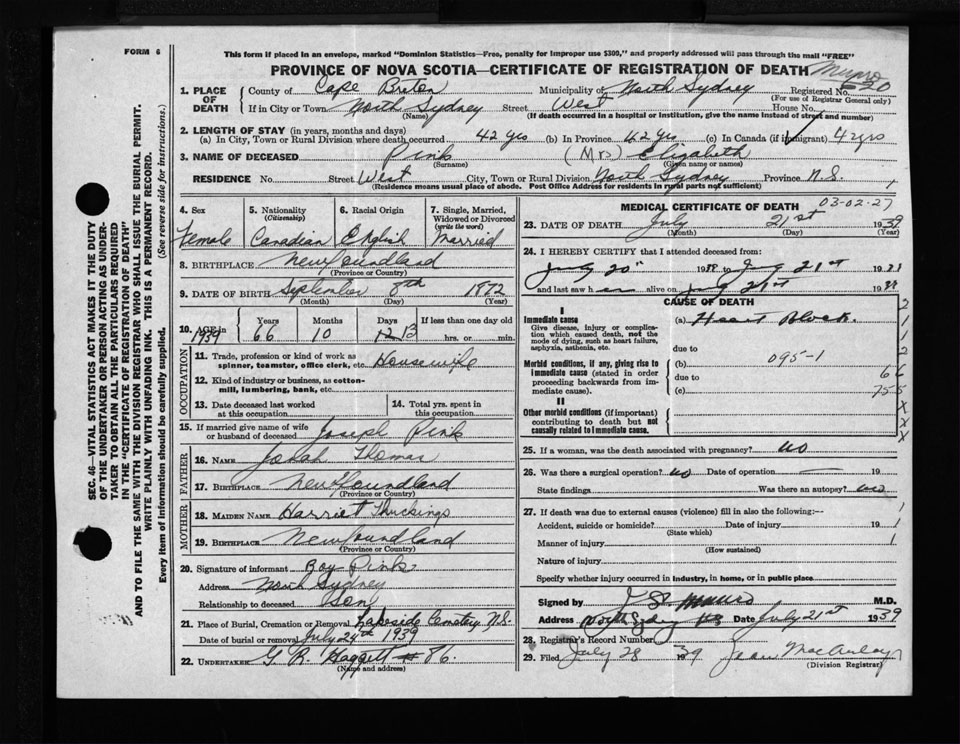 FORM 6
This form if placed in an envelope, marked "Dominion Statistics—Free, penalty for improper use $300," and properly addressed will pass through the mail "FREE"
PROVINCE OF NOVA SCOTIA—CERTIFICATE OF REGISTRATION OF DEATH Munro
1. PLACE OF DEATH County of Cape Breton Municipality of North Sydney Registered No. 520
(For use of Registrar General only)
If in City or Town North Sydney Street West House No.
(Name) (If death occurred in a hospital or institution, give the name instead of street and number)
2. LENGTH OF STAY (in years, months and days)
(a) In City, Town or Rural Division where death occurred 42 yrs (b) In Province 42 yrs (c) In Canada (if immigrant) 42 yrs
3. NAME OF DECEASED Pink (Mrs) Elizabeth
(Surname) (Given name or names)
RESIDENCE No. Street West City, Town or Rural Division North Sydney Province N.S. 1
(Residence means usual place of abode. Post Office Address for residents in rural parts not sufficient)
4. Sex 5. Nationality (Citizenship) 6. Racial Origin 7. Single, Married, Widowed or Divorced (write the word)
Female Canadian English Married
8. BIRTHPLACE Newfoundland
(Province or Country)
9. DATE OF BIRTH September 8th 1872
(Month) (Day) (Year)
10. AGE in Years Months Days If less than one day old
1939 66 10 13 hrs. or min.
OCCUPATION
11. Trade, profession or kind of work as spinner, teamster, office clerk, etc. Housewife
12. Kind of industry or business, as cotton-mill, lumbering, bank, etc.
13. Date deceased last worked at this occupation 14. Total yrs. spent in this occupation
15. If married give name of wife or husband of deceased Joseph Pink
FATHER
16. NAME Jonah Thomas
17. BIRTHPLACE Newfoundland
(Province or Country)
MOTHER
18. MAIDEN NAME Harriet
19. BIRTHPLACE Newfoundland
(Province or Country)
20. Signature of informant Roy Pink
Address North Sydney
Relationship to deceased Son
21. Place of Burial, Cremation or Removal Lakeside Cemetery N.S.
Date of burial or removal July 24th 1939
22. UNDERTAKER G. R. Haggett # 86.
(Name and address)
MEDICAL CERTIFICATE OF DEATH 03-02-27
23. DATE OF DEATH July 21st 1939
(Month) (Day) (Year)
24. I HEREBY CERTIFY that I attended deceased from:
July 20th 19 to July 21st 19
and last saw her alive on July 21st 19
CAUSE OF DEATH
I
Immediate cause (a) Heart Block.
Give disease, injury or complication which caused death, not the mode of dying, such as heart failure, asphyxia, asthenia, etc.
due to
Morbid conditions, if any, giving rise to immediate cause (stated in order proceeding backwards from immediate cause). (b) 095-1
due to
(c)
II
Other morbid conditions (if important) contributing to death but not causally related to immediate cause.
25. If a woman, was the death associated with pregnancy? no
26. Was there a surgical operation? no Date of operation — 19
State findings Was there an autopsy? no
27. If death was due to external causes (violence) fill in also the following:—
Accident, suicide or homicide? Date of injury 19 1
(State which)
Manner of injury 1
(How sustained)
Nature of injury
Specify whether injury occurred in industry, in home, or in public place
Signed by Munro M.D.
Address North Sydney NS Date July 21st 1939
28. Registrar's Record Number
29. Filed July 28 1939 Jean MacAulay
(Division Registrar)
SEC. 46—VITAL STATISTICS ACT MAKES IT THE DUTY
OF THE UNDERTAKER OR PERSON ACTING AS UNDER-
TAKER TO OBTAIN ALL THE PARTICULARS REQUIRED
IN THE "CERTIFICATE OF REGISTRATION OF DEATH"
AND TO FILE THE SAME WITH THE DIVISION REGISTRAR WHO SHALL ISSUE THE BURIAL PERMIT.
WRITE PLAINLY WITH UNFADING INK. THIS IS A PERMANENT RECORD.
Every item of information should be carefully supplied. (See reverse side for instructions.)